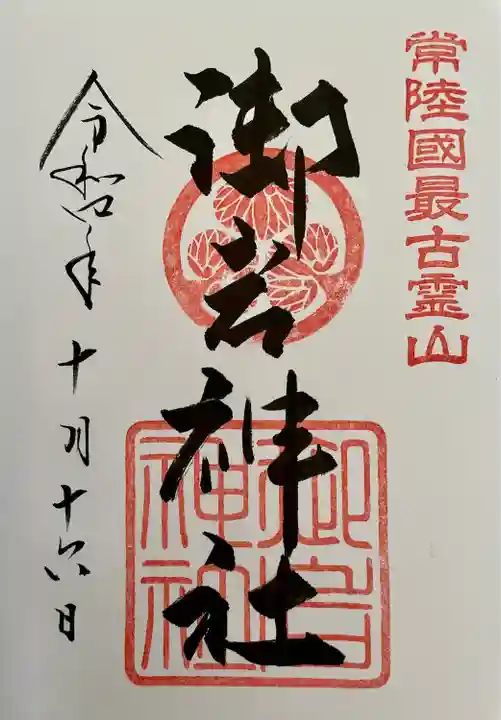 常陸國最古霊山
御岩神社
御岩神社
令和四年十月十六日